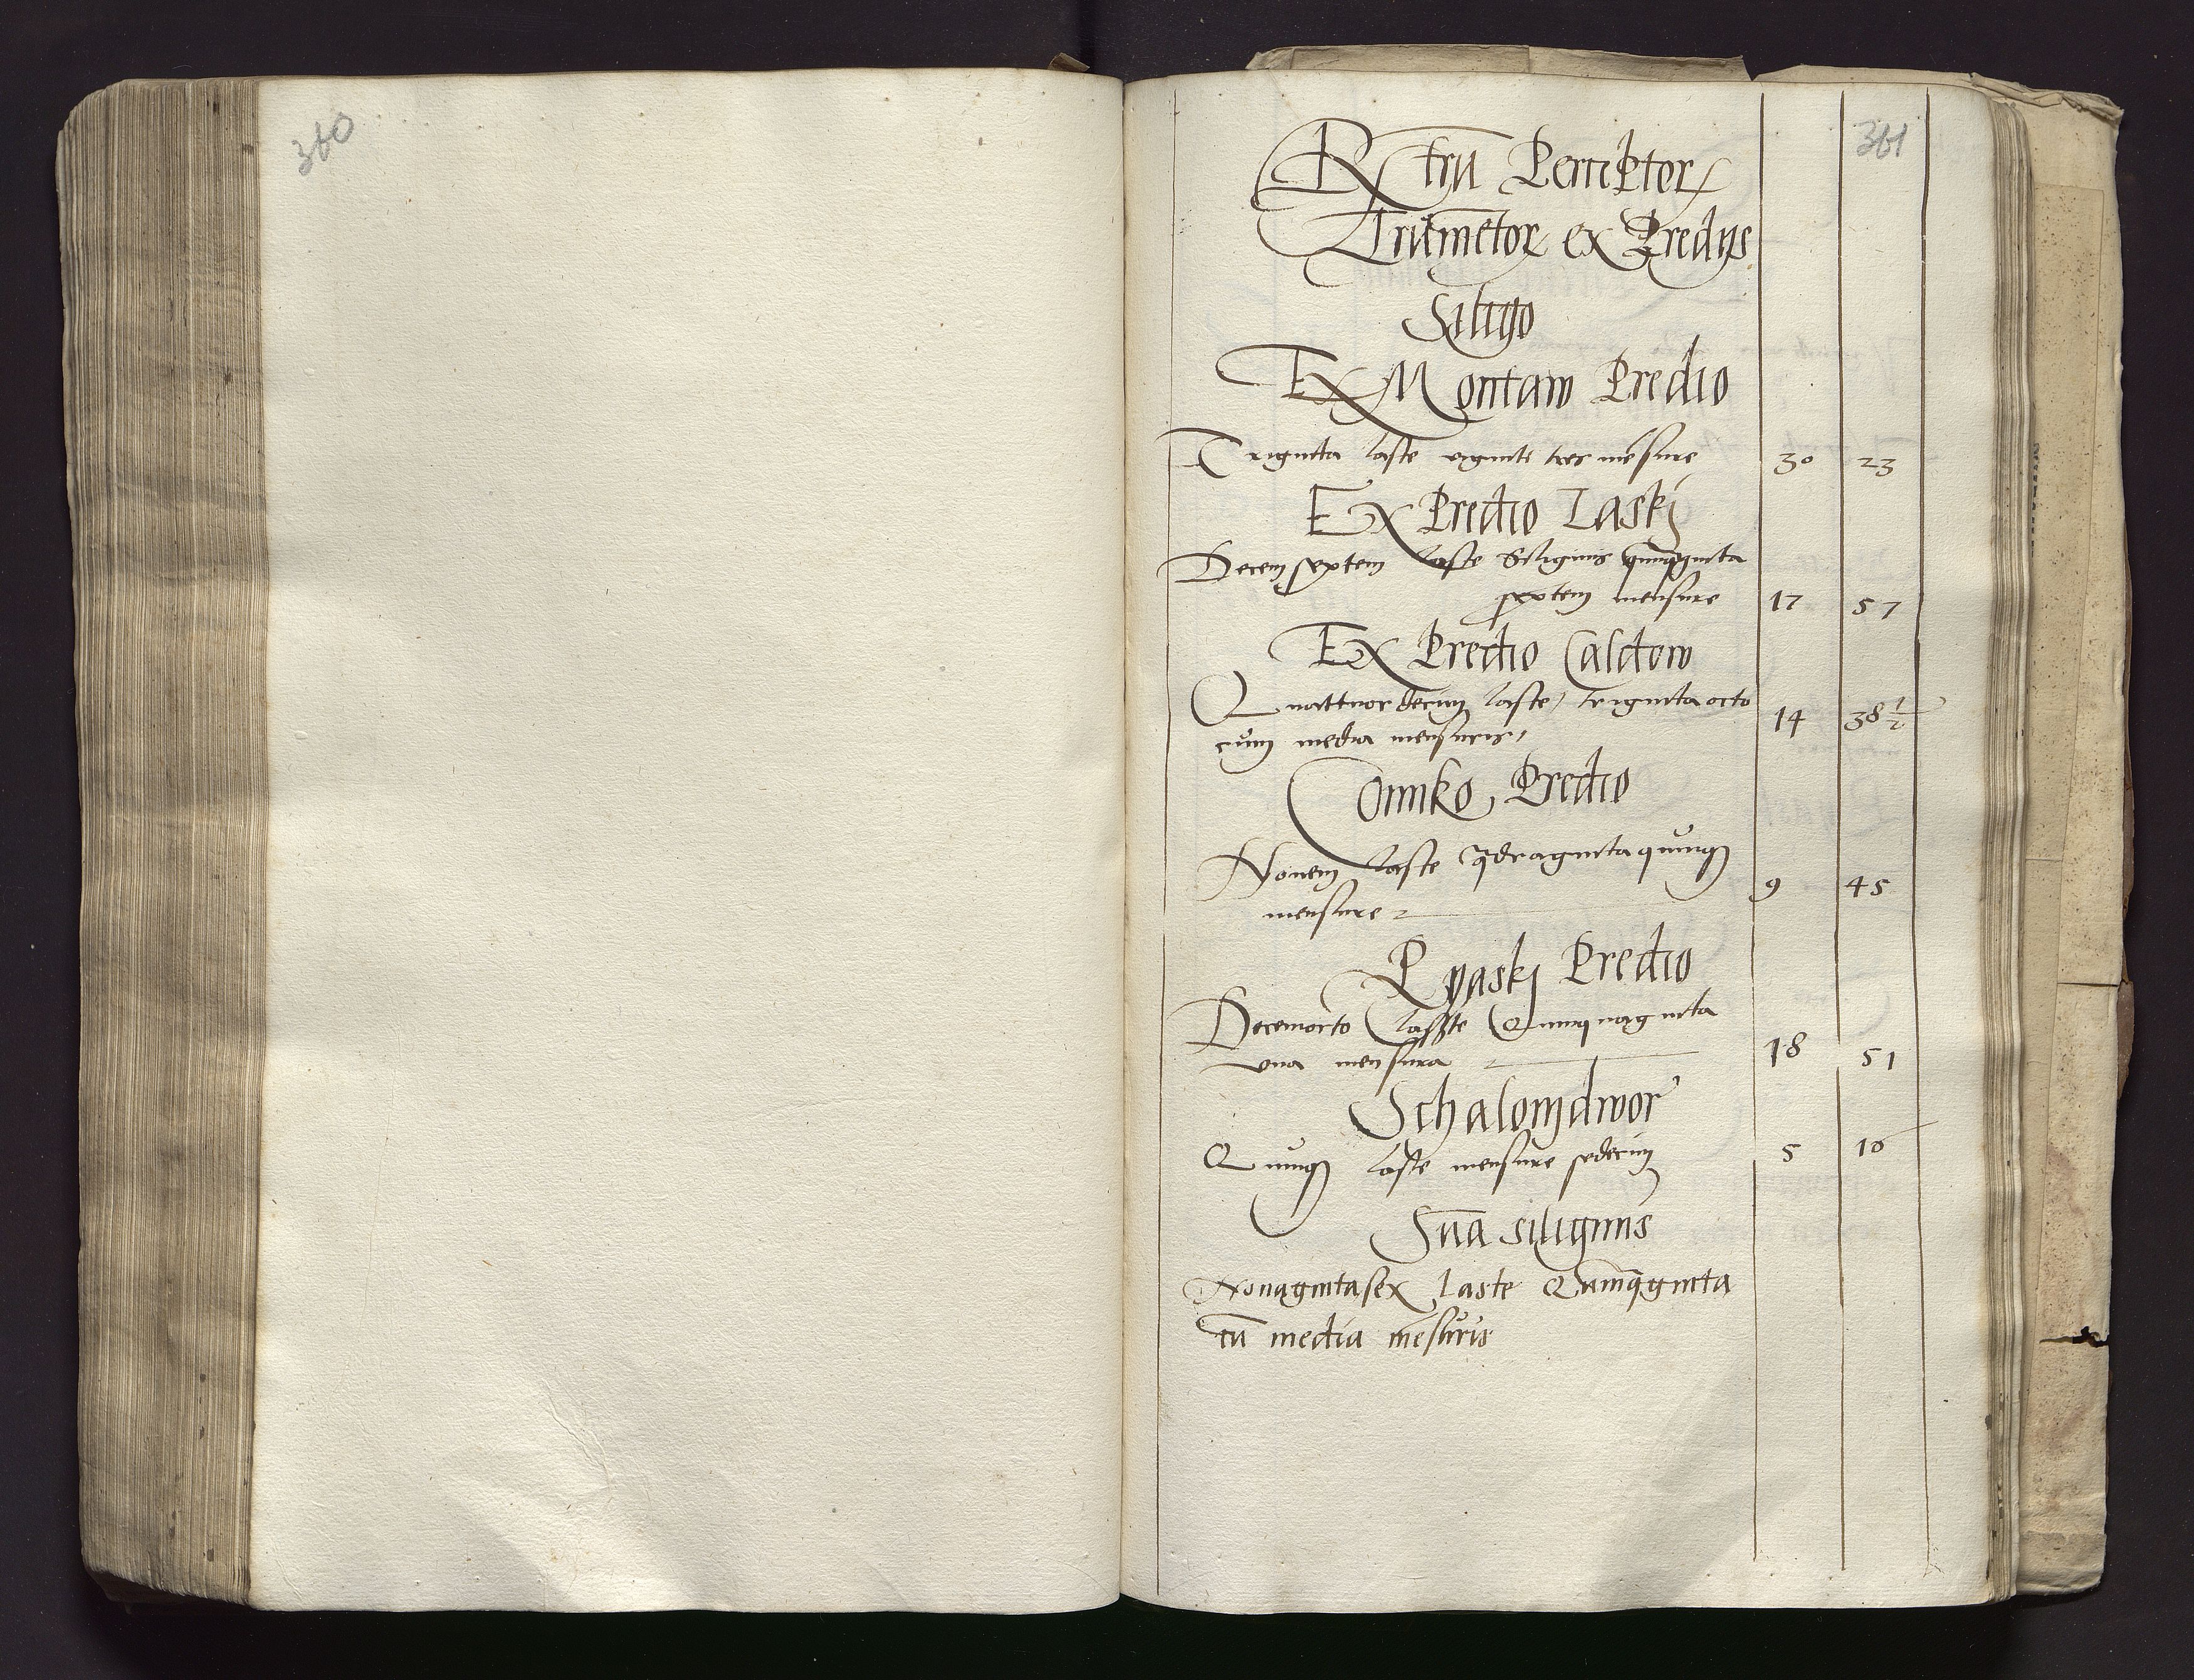 360
361
Rtru Perceptor
Frumetor ex Predys
Siligo
Ex Montaw Predio
Triginta laste viginti tres mesure 30 23
Ex Predio Laskj
Decem septem laste Siliginis quinqginta
septem mensure 17 57
Ex Predio Caldow
Quattuordecim laste, triginta octo
cum media mensuris, 14 38 1/2
Conyko Predio
Novem laste qdraginta quinq
mensure 9 45
Pyaskj Predio
Decemocto laszte Quinquaginta
vna mensura 18 51
Schalonydwor
Quinq laste mensure sedecim 5 16
Sua siliginis
Nonagintasex Laste Quinqginta
cu media mesuris